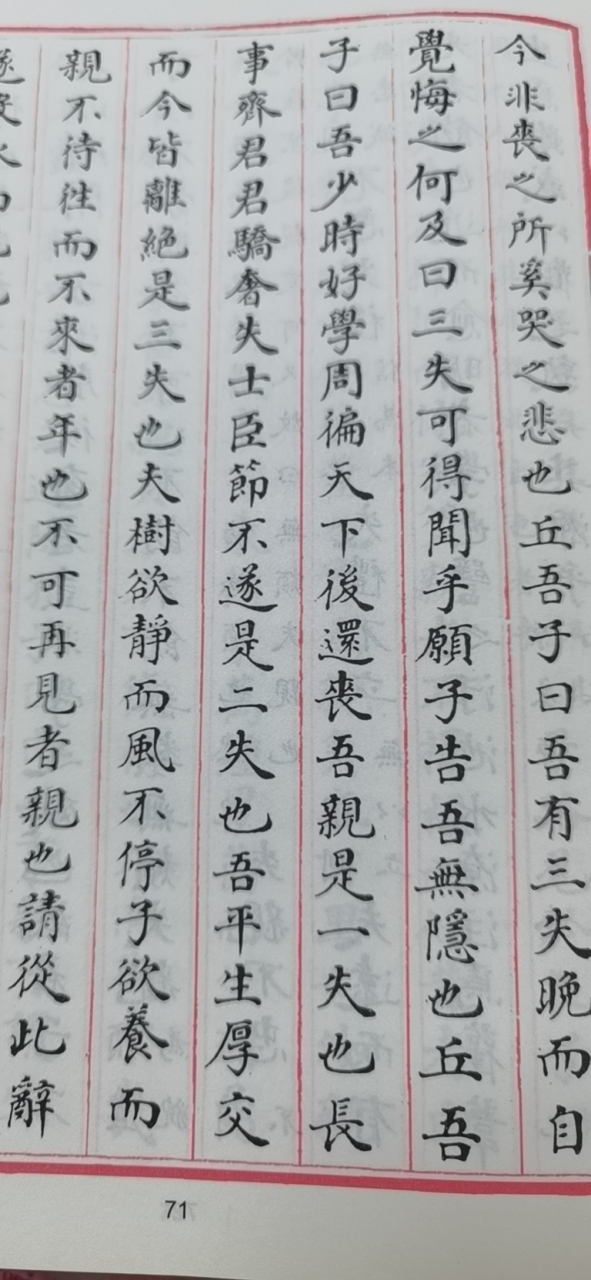 今非喪之所奚哭之悲也丘吾子曰吾有三失晚而自
覺悔之何及曰三失可得聞乎願子告吾無隱也丘吾
子曰吾少時好學周徧天下後還喪吾親是一失也長
事齊君君驕奢失士臣節不遂是二失也吾平生厚交
而今皆離絕是三失也夫樹欲靜而風不停子欲養而
親不待往而不來者年也不可再見者親也請從此辭
71